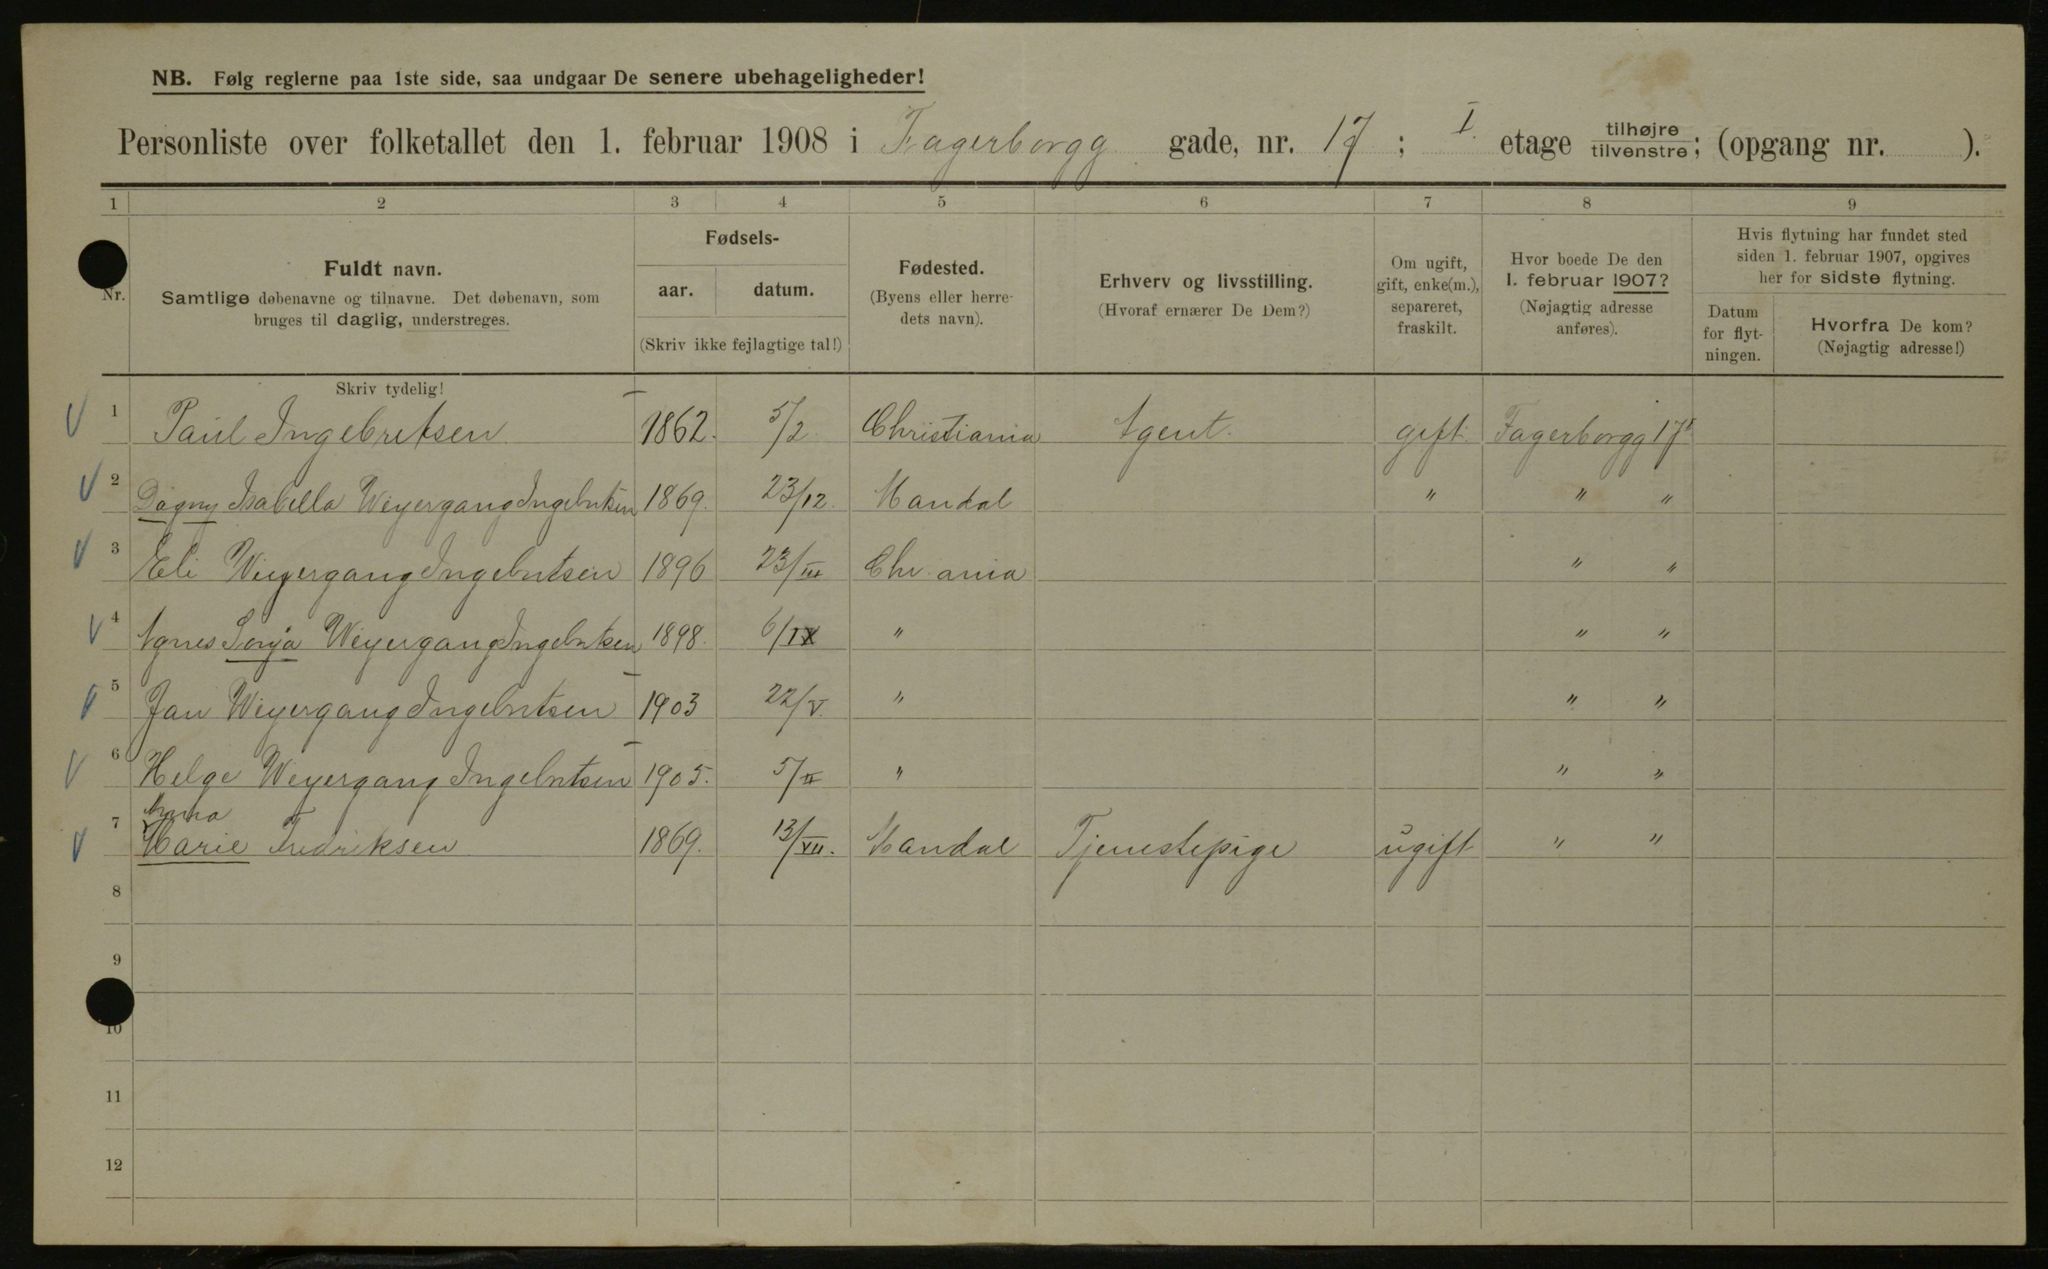 NB. Følg reglerne paa 1ste side, saa undgaar De senere ubehageligheder!
Personliste over folketallet den 1. februar 1908 i Fagerborgg gade, nr. 17; I. etage tilhøjre tilvenstre; (opgang nr. ).
1 2 3 4 5 6 7 8 9
Nr.
Fuldt navn.
Samtlige døbenavne og tilnavne. Det døbenavn, som
bruges til daglig, understreges.
Skriv tydelig!
Fødsels-
aar. datum.
(Skriv ikke fejlagtige tal!)
Fødested.
(Byens eller herre-
dets navn).
Erhverv og livsstilling.
(Hvoraf ernærer De Dem?)
Om ugift,
gift, enke(m.),
separeret,
fraskilt.
Hvor boede De den
1. februar 1907?
(Nøjagtig adresse
anføres).
Hvis flytning har fundet sted
siden 1. februar 1907, opgives
her for sidste flytning.
Datum
for flyt-
ningen.
Hvorfra De kom?
(Nøjagtig adresse!)
1 Paul Ingebretsen 1862. 5/2. Christiania Agent. gift. Fagerborgg 17 I
2 Dagny Isabella Weyergang Ingebretsen 1869. 23/12. Mandal " " "
3 Eli Weyergang Ingebretsen 1896 23/III Chr.ania " "
4 Agnes Sonja Weyergang Ingebretsen 1898. 6/IX " " "
5 Jan Weyergang Ingebretsen 1903 22/V. " " "
6 Helge Weyergang Ingebretsen 1905. 5/II " " "
Anna
7 Marie Fredriksen 1869. 13/XII. Mandal Tjenestepige ugift " "
8
9
10
11
12